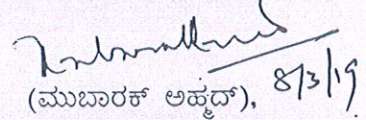 (ಮುಬಾರಕ್ ಅಹ್ಮದ್), 8/3/19